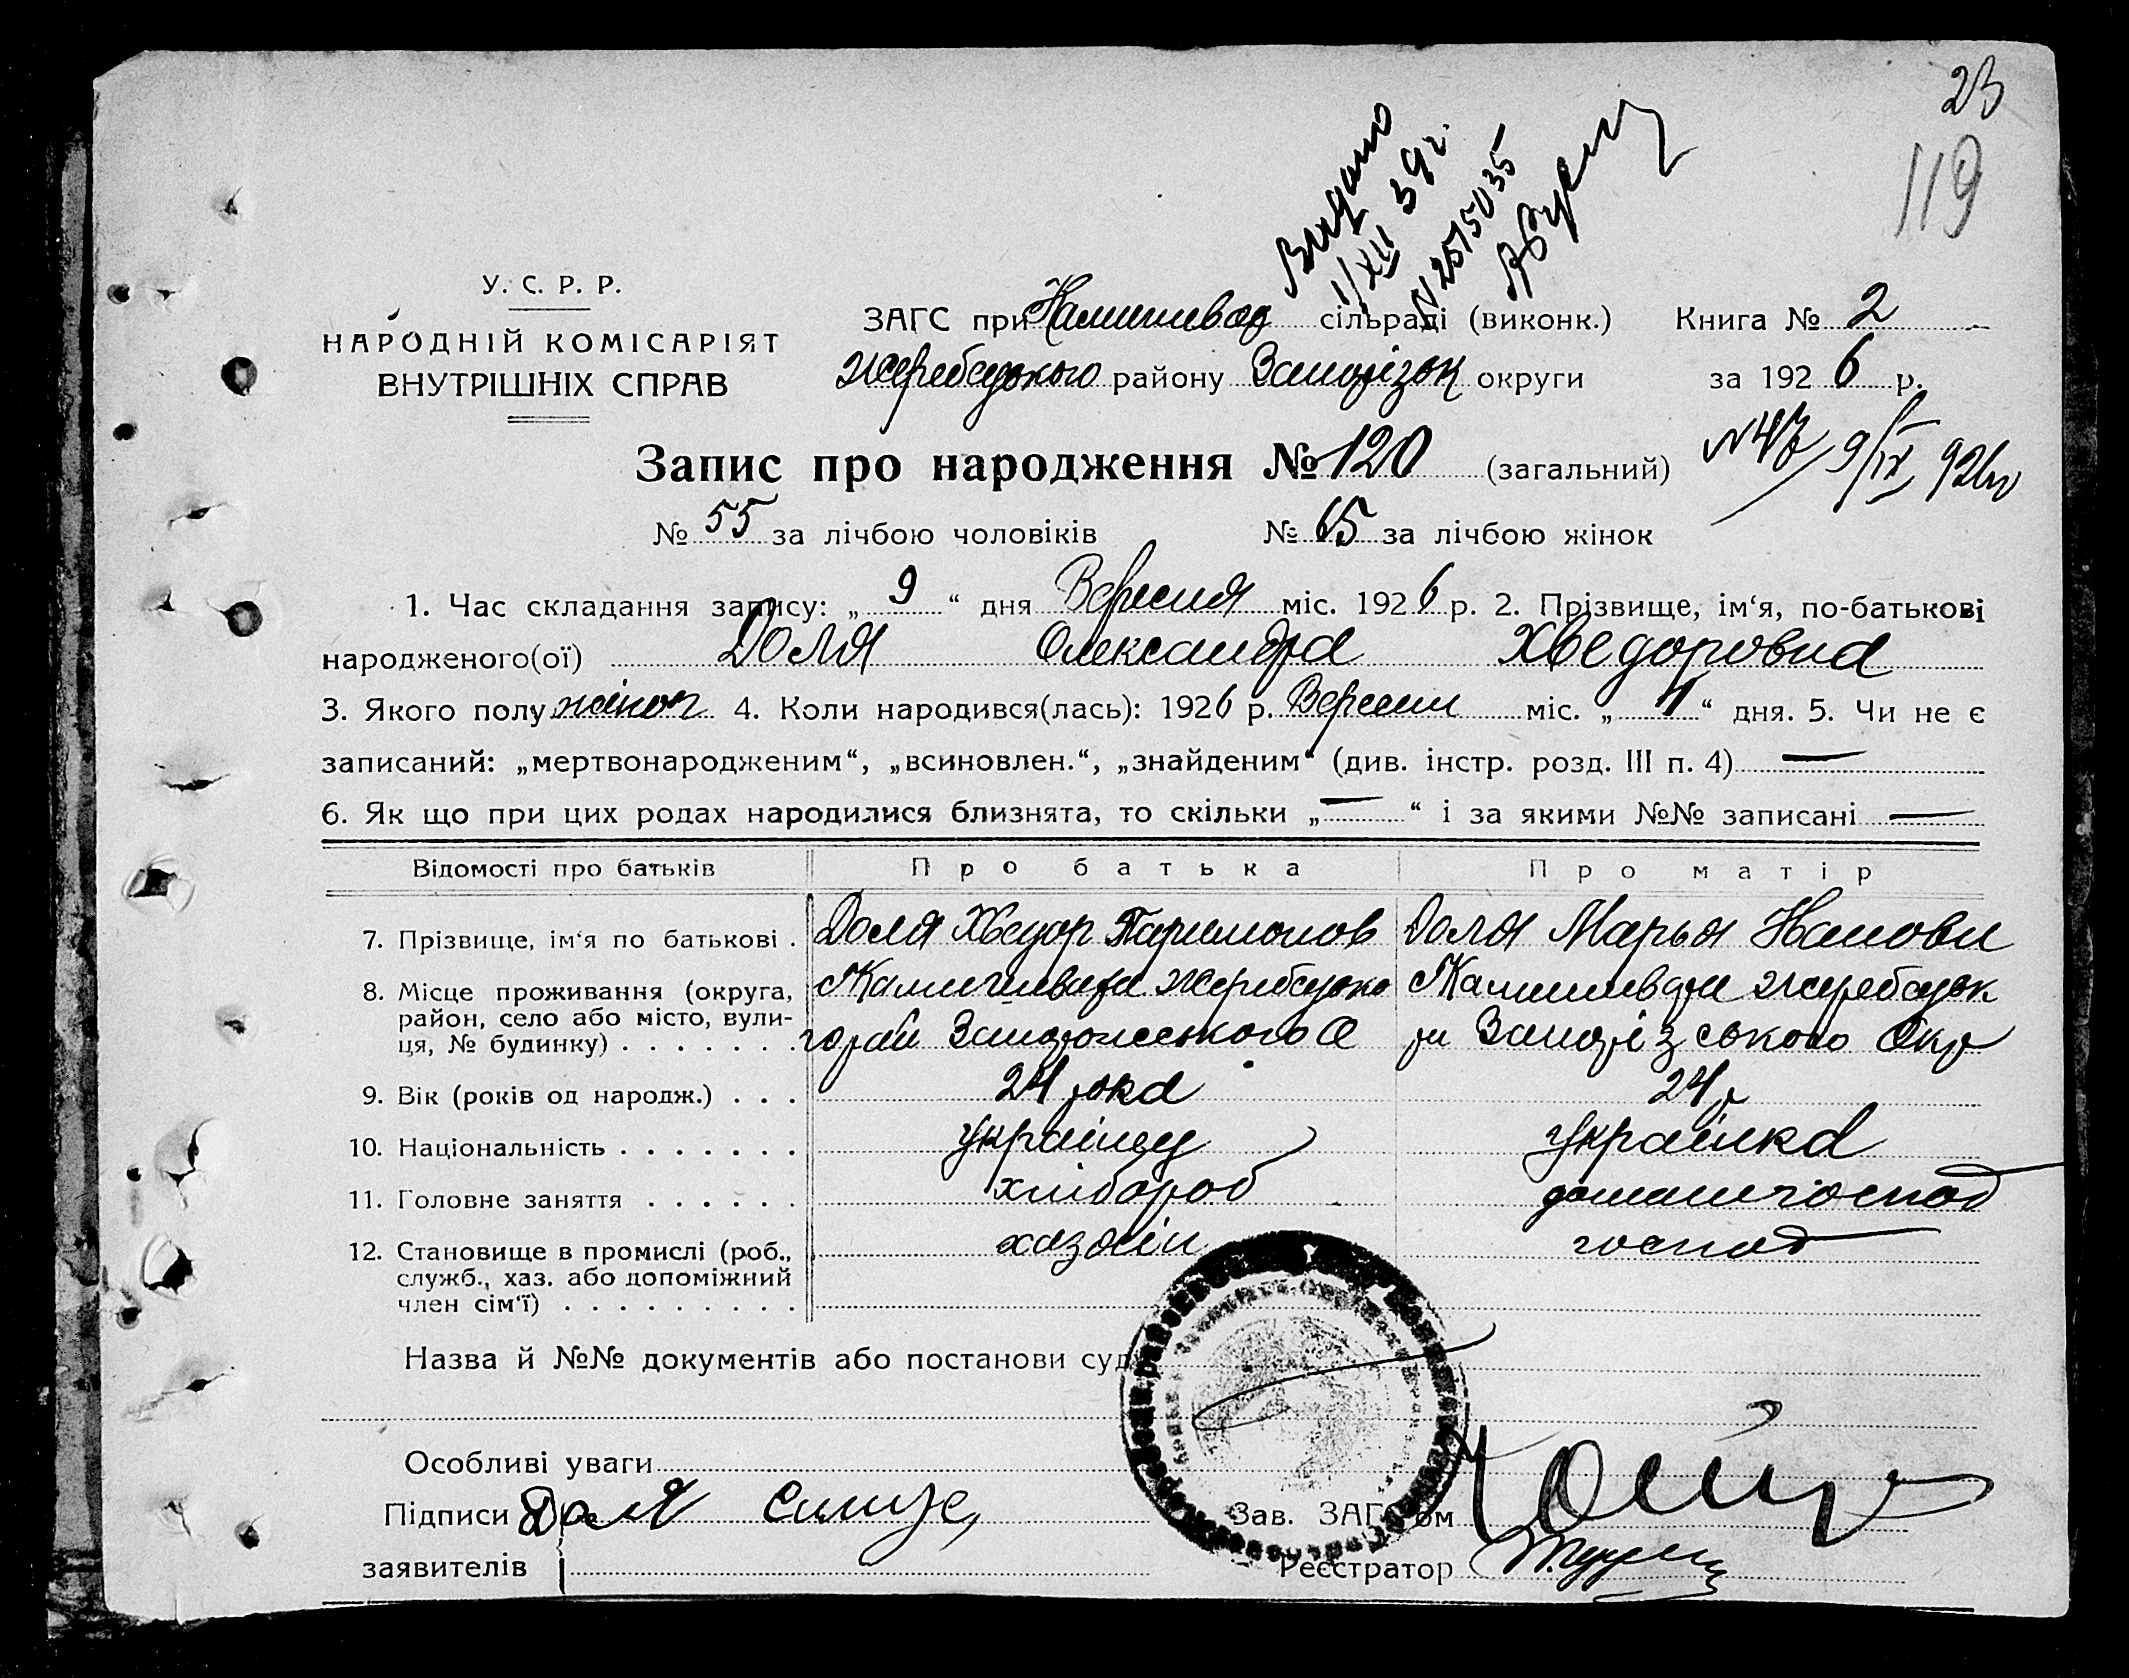 23
119
Видано
1/XII 39 г.
N 2515035
У. С. Р. Р.
НАРОДНІЙ КОМІСАРІЯТ
ВНУТРІШНІХ СПРАВ
ЗАГС при сільраді (виконк.) Книга № 2
Жеребецького району Запорізьк округи за 1926 р.
Запис про народження № 120 (загальний)
N 47 9/IX 926 р
№ 55 за лічбою чоловіків № 65 за лічбою жінок
1. Час складання запису: „ 9 “ дня Вересня міс. 1926 р. 2. Прізвище, ім‘я, по-батькові
народженого(ої) Доля Олександра Хведоровна
3. Якого полу жіноч 4. Коли народився(лась): 1926 р. Вересня міс. „ “ дня. 5. Чи не є
записаний: „мертвонародженим“, „всиновлен.“, „знайденим“ (див. інстр. розд. III п. 4) —
6. Як що при цих родах народилися близнята, то скільки „ — “ і за якими №№ записані —
Відомості про батьків Про батька Про матір
7. Прізвище, ім‘я по батькові . Доля Хведор Доля Марья
8. Місце проживання (округа,
район, село або місто, вули-
ця, № будинку) . . . . . . . Запорізського Окр
9. Вік (років од народж.) . . . 24 рока 24 р
10. Національність . . . . . . . українец українка
11. Головне заняття . . . . . . хлібороб домашн господ
12. Становище в промислі (роб., хазяїн господ
служб., хаз. або допоміжний
член сім‘ї) . . . . . . . . .
Назва й №№ документів або постанови суд
Особливі уваги
Підписи Доля Зав. ЗАГС‘ом
заявителів Реєстратор